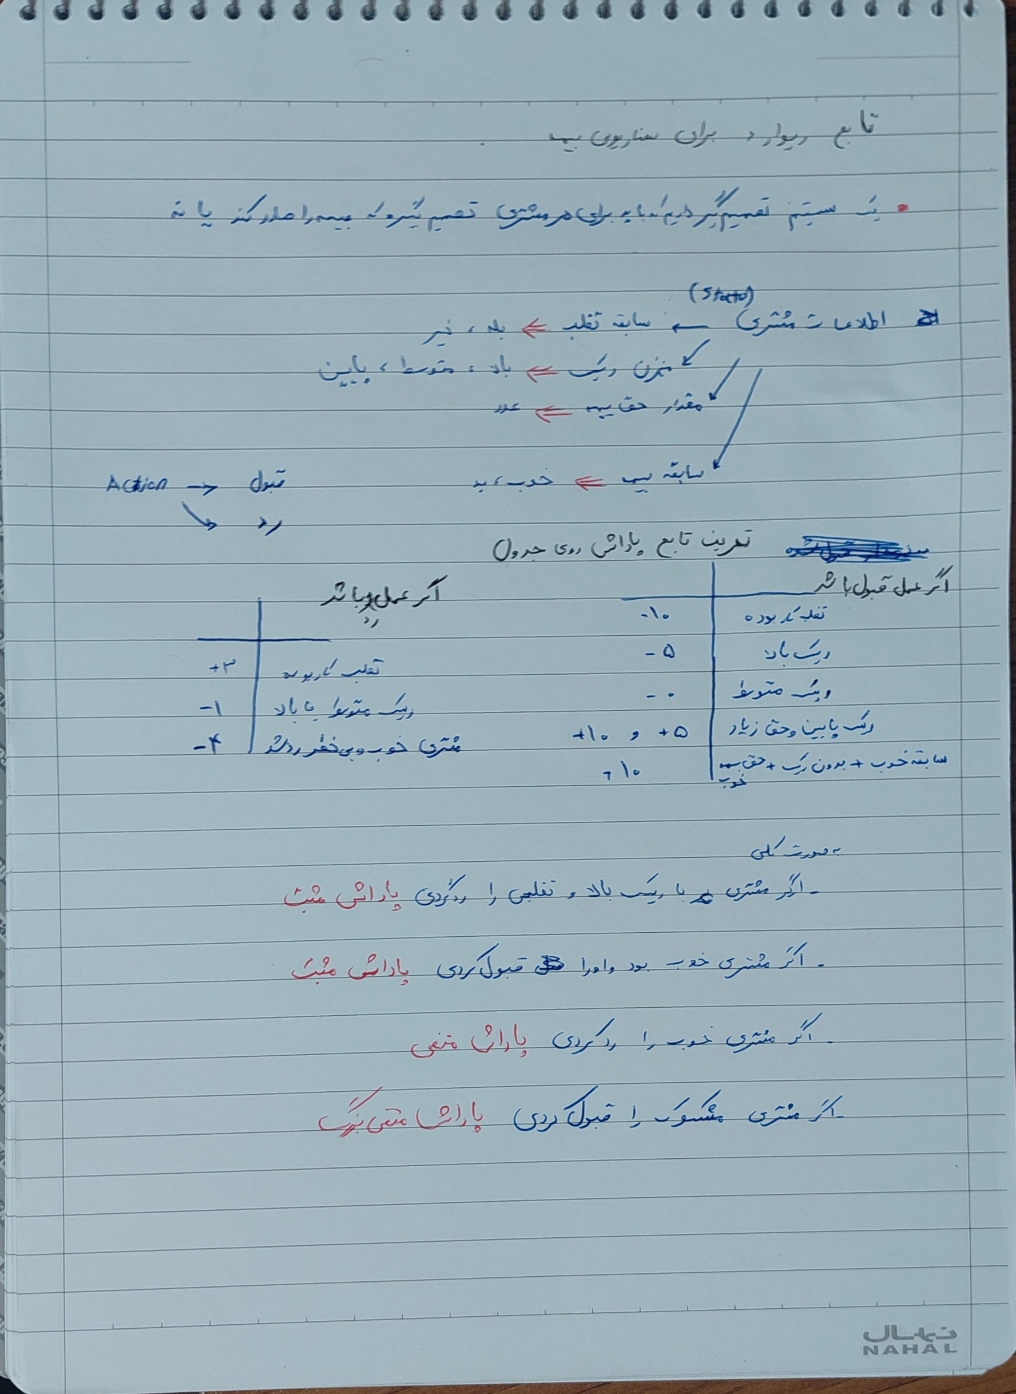 تابع ریوارد برای سناریوی بیمه.
• یک سیستم تصمیم‌گیر داریم که باید برای هر مشتری تصمیم بگیرد که بیمه را صادر کند یا نه
(State)
اطلاعات مشتری ← سابقه تقلب ⇐ بله ، خیر
میزان ریسک ⇐ بالا ، متوسط ، پایین
مقدار حق بیمه ⇐ عدد
سابقه بیمه ⇐ خوب ، بد
Action → قبول
رد
تعریف تابع پاداش روی جدول
اگر عمل قبول باشد
تقلب کار بوده -۱۰
ریسک بالا -۵
ریسک متوسط -۰
ریسک پایین و حق زیاد +۵ و +۱۰
سابقه خوب + بدون ریسک + حق بیمه خوب +۱۰
اگر عمل رد باشد
تقلب کار بوده +۳
ریسک متوسط یا بالا -۱
مشتری خوب و بی خطر رد شد -۴
به صورت کلی
- اگر مشتری با ریسک بالا و تقلبی را رد کردی پاداش مثبت
- اگر مشتری خوب بود و او را قبول کردی پاداش مثبت
- اگر مشتری خوب را رد کردی پاداش منفی
- اگر مشتری مشکوک را قبول کردی پاداش منفی بزرگ
نهال
NAHAL